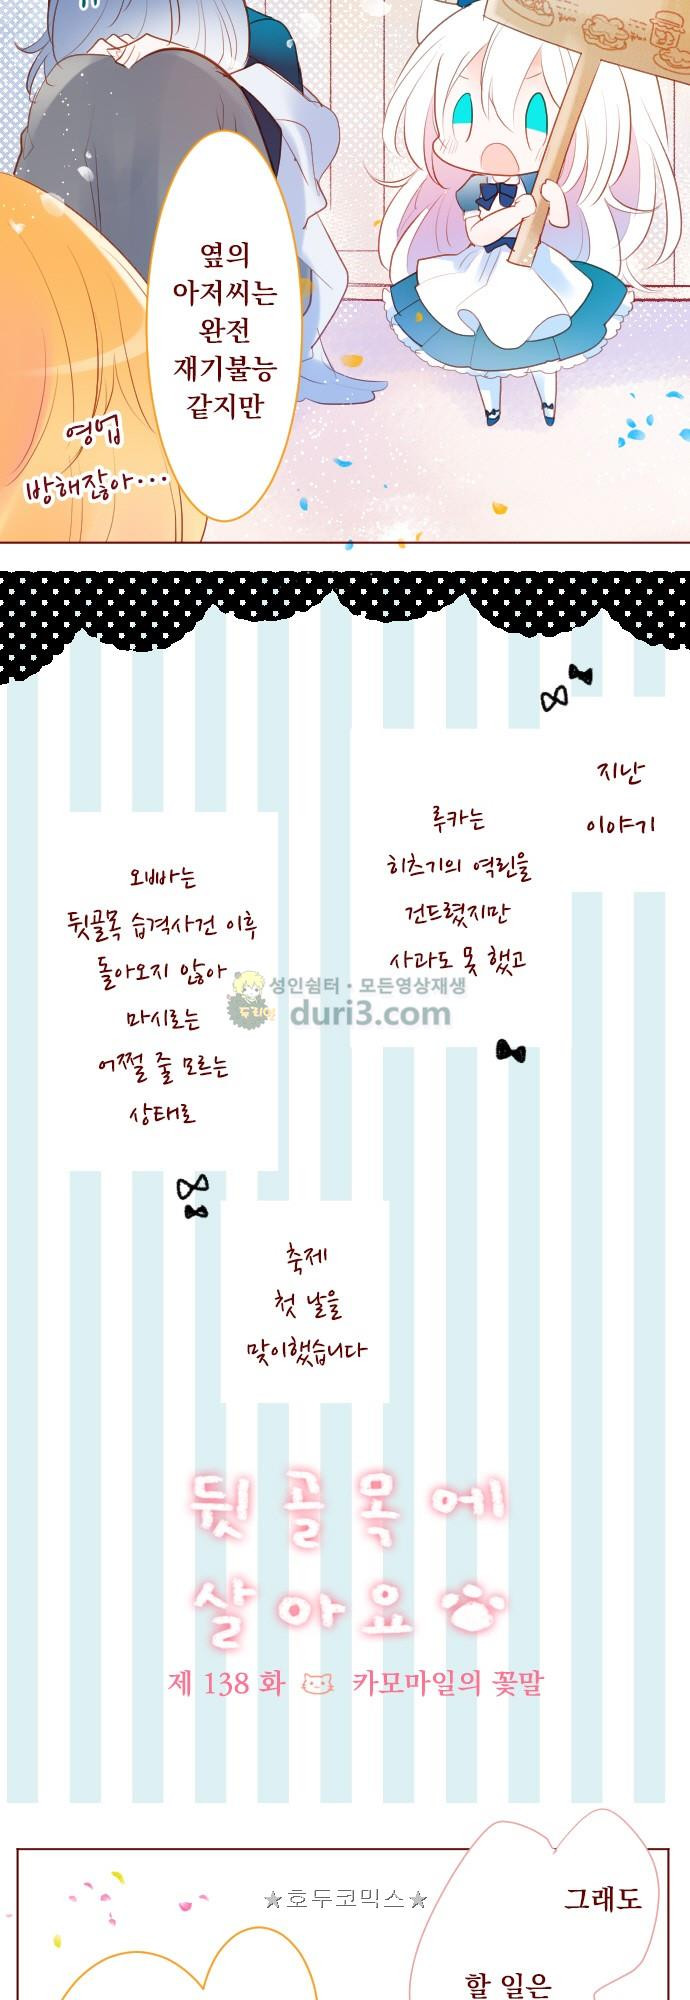 옆의
아저씨는
완전
재기불능
같지만
영업
방해잖아…
지난
이야기
루카는
히츠기의 역린을
건드렸지만
사과도 못 했고
오빠는
뒷골목 습격사건 이후
돌아오지 않아
마시로는
어쩔 줄 모르는
상태로
성인쉼터·모든영상재생
두리얼
duri3.com
축제
첫 날을
맞이했습니다
뒷골목에
살아요
제 138 화 카모마일의 꽃말
★호두코믹스★
그래도
할 일은